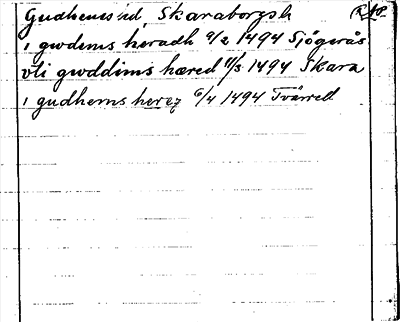 Gudhems hd, Skaraborgs l.
i gwdems heradh 9/2 1494 Sjögerås
vti gwddims hæred 11/3 1494 Skara
i gudhems herez 6/4 1494 Tvärred